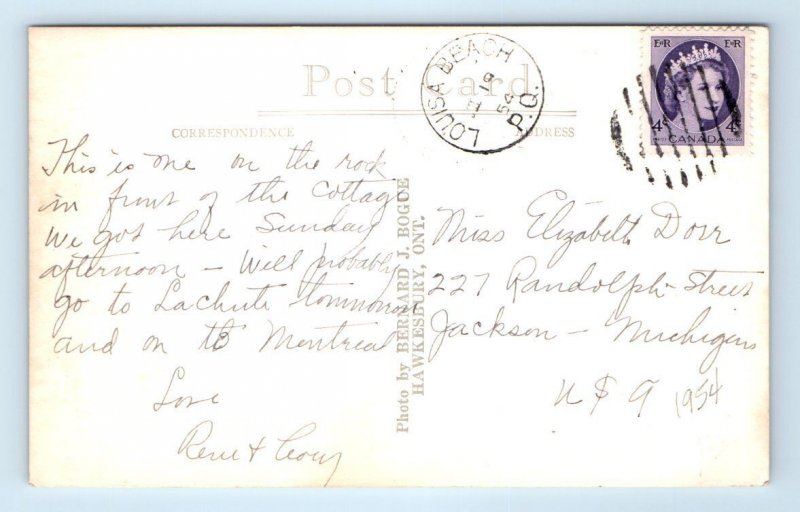 Post Card
CORRESPONDENCE
ADDRESS
LOUISA BEACH
19
54
P.Q.
E II R
E II R
4¢
4¢
CANADA
This is one on the rock
in front of the Cottage
We got here Sunday
afternoon – Will probably
go to Lachute tommorow
and on to Montreal
Love
Photo by BERNARD J. BOGUE
HAWKESBURY, ONT.
Miss Elizabeth Dorr
227 Randolph Street
Jackson – Michigan
USA 1954